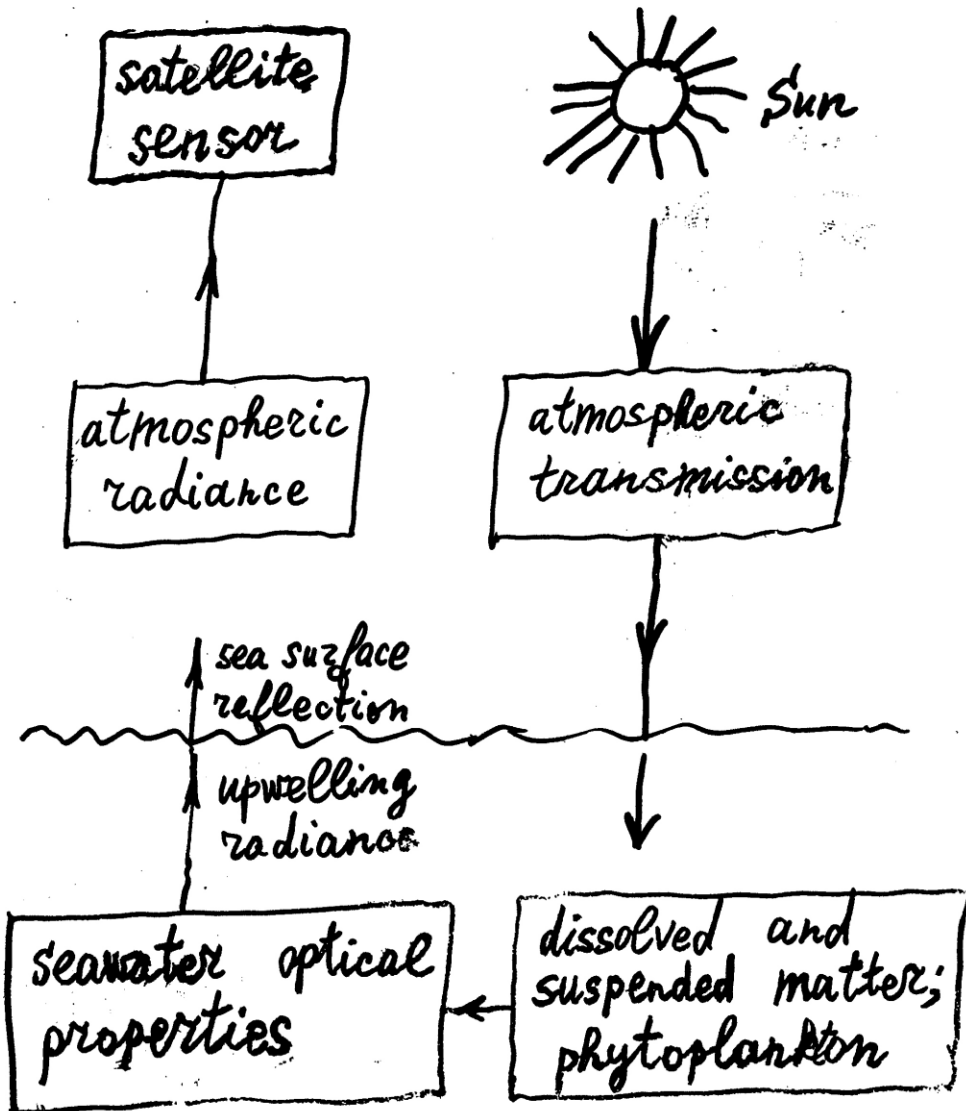 satellite
sensor
Sun
atmospheric
radiance
atmospheric
transmission
sea surface
reflection
upwelling
radiance
seawater optical
properties
dissolved and
suspended matter;
phytoplankton